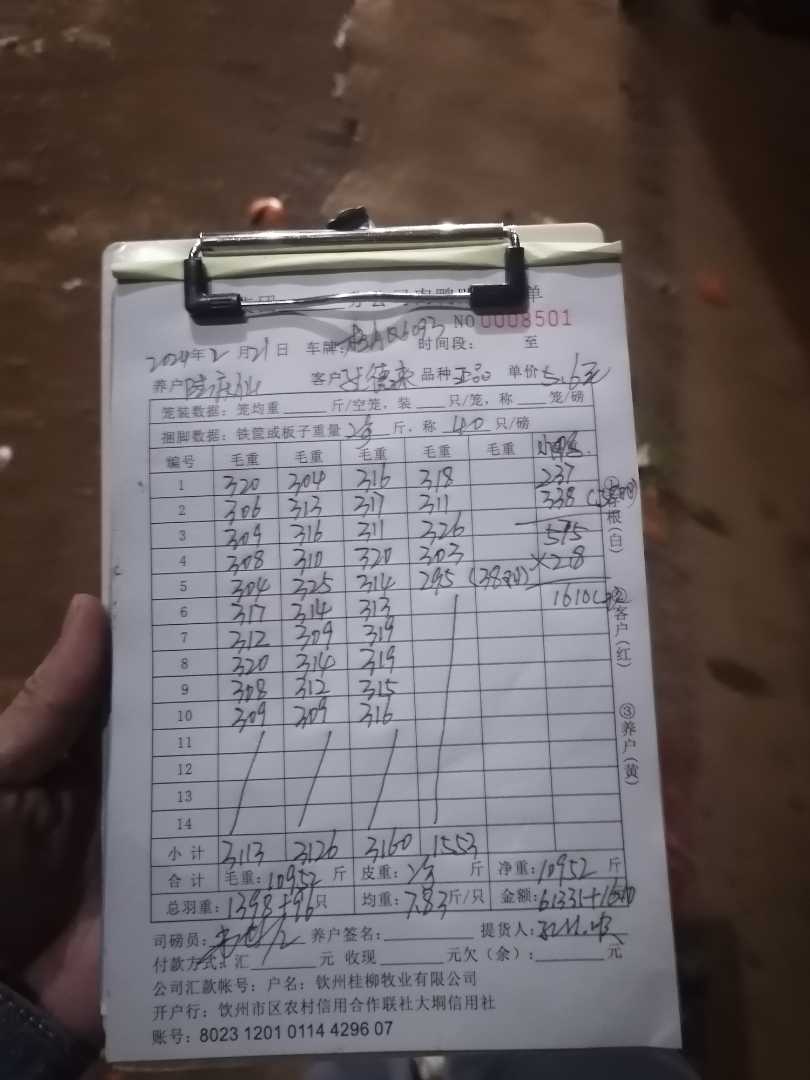 单
NO 0008501
2024年2月21日 车牌: 时间段: 至
养户 客户 品种 正品 单价 5.6元
笼装数据: 笼均重 斤/空笼, 装 只/笼, 称 笼/磅
捆脚数据: 铁筐或板子重量 斤, 称 40 只/磅
编号 毛重 毛重 毛重 毛重 毛重
1 320 304 316 318 237
2 306 313 317 311 338
3 309 316 311 326 575
4 308 310 320 303 ×2.8
5 304 325 314 295 (38只) 1610
6 317 314 313
7 312 309 319
8 320 314 319
9 308 312 315
10 309 309 316
11
12
13
14
小计 3113 3126 3160 1553
合计 毛重: 10952 斤 皮重: 斤 净重: 10952 斤
总羽重: 1398+96只 均重: 7.83斤/只 金额: 61331+1610
司磅员: 养户签名: 提货人:
付款方式: 汇 元 收现 元欠(余): 元
公司汇款帐号: 户名: 钦州桂柳牧业有限公司
开户行: 钦州市区农村信用合作联社大垌信用社
账号: 8023 1201 0114 4296 07
根(白)
②客户(红)
③养户(黄)